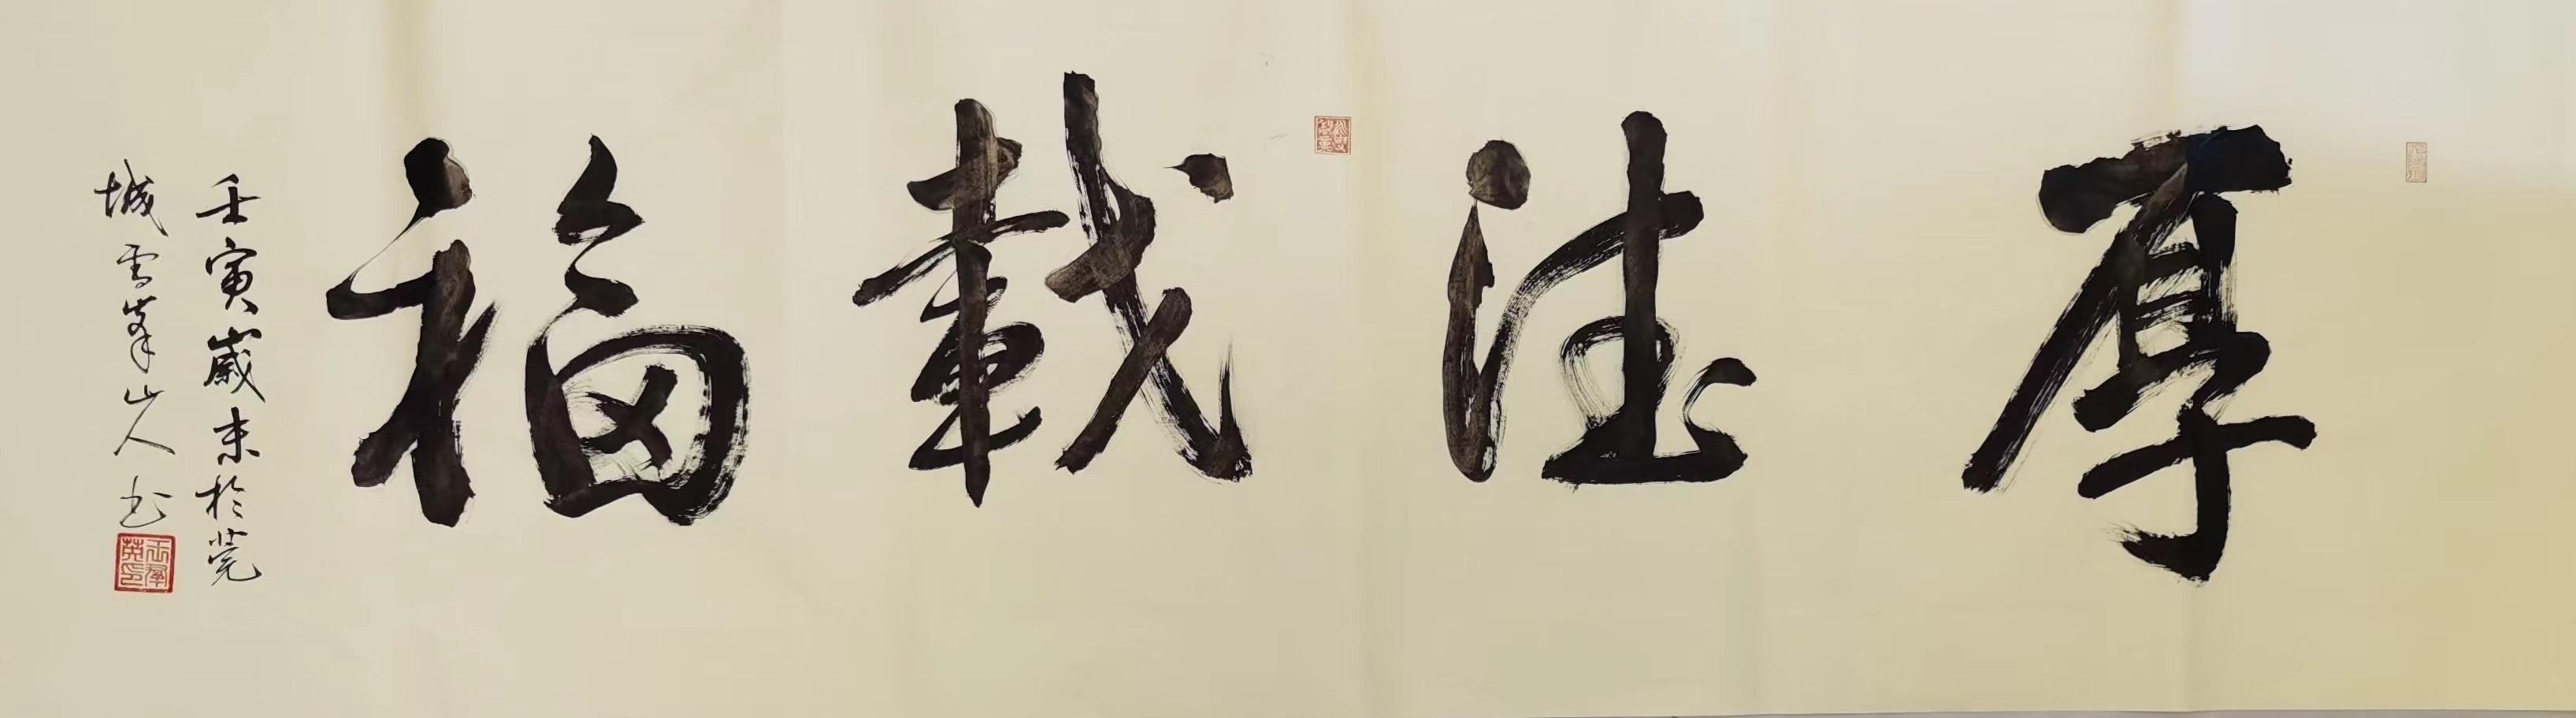 厚德載福
壬寅歲末於莞
城雪峯山人书